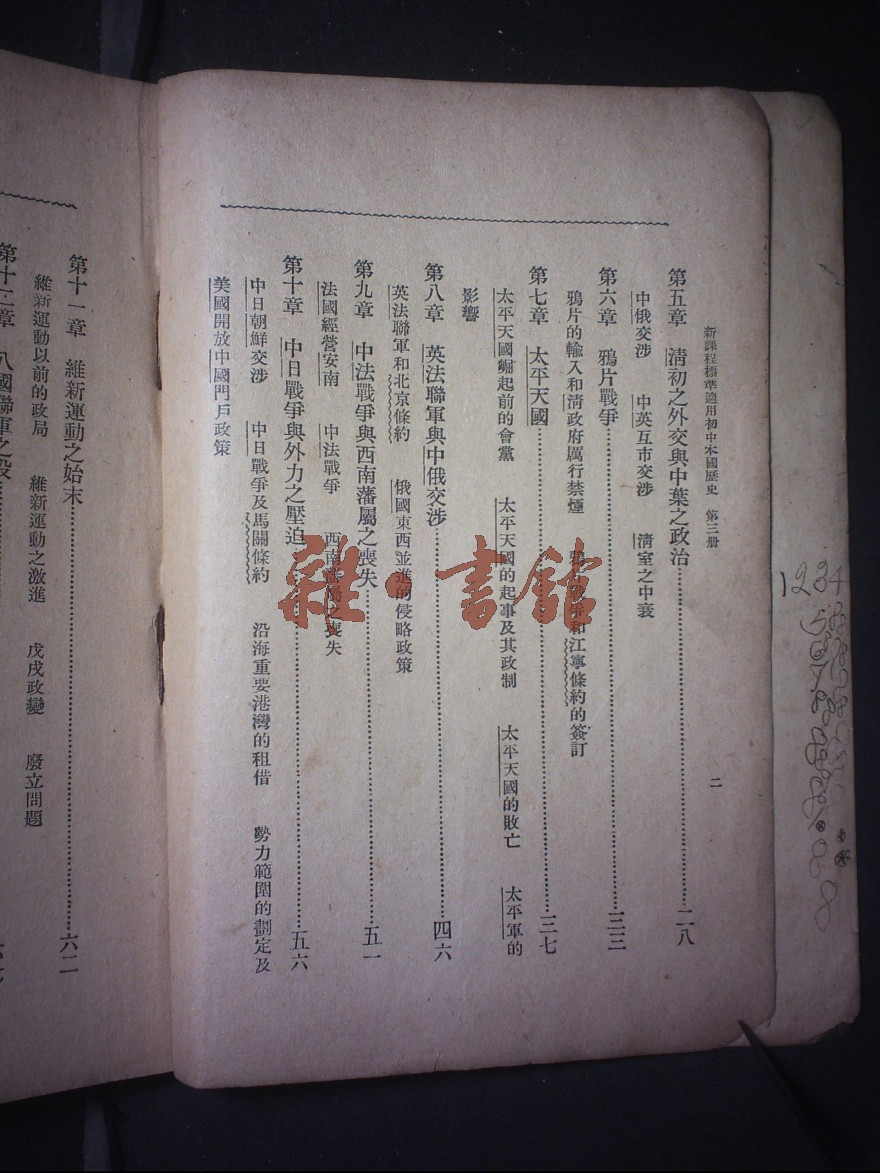 新課程標準適用初中本國歷史 第三册
二
第五章 淸初之外交與中葉之政治……二八
中俄交涉 中英互市交涉 淸室之中衰
第六章 鴉片戰爭……三三
鴉片的輸入和淸政府厲行禁煙 鴉片戰爭和江寧條約的簽訂
第七章 太平天國……三七
太平天國崛起前的會黨 太平天國的起事及其政制 太平天國的敗亡 太平軍的
影響
第八章 英法聯軍與中俄交涉……四六
英法聯軍和北京條約 俄國東西並進的侵略政策
第九章 中法戰爭與西南藩屬之喪失……五一
法國經營安南 中法戰爭 西南藩屬之喪失
第十章 中日戰爭與外力之壓迫……五六
中日朝鮮交涉 中日戰爭及馬關條約 沿海重要港灣的租借 勢力範圍的劃定及
美國開放中國門戶政策
第十一章 維新運動之始末……六二
維新運動以前的政局 維新運動之激進 戊戌政變 廢立問題
第十二章 八國聯軍之役
雜·書館
1234